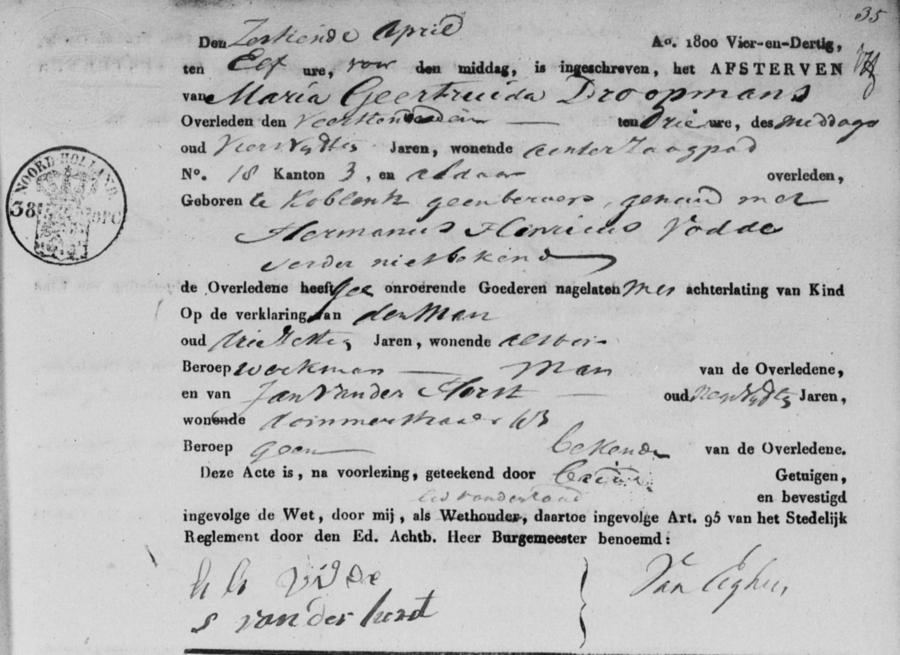 35
Den Zestiende April Ao. 1800 Vier-en-Dertig,
ten Elf ure, voor den middag, is ingeschreven, het AFSTERVEN
van Maria Geertruida Droopmans
Overleden den Veertienden — ten Drie ure, des middags
oud Jaren, wonende agter Zaagpad
No. 18 Kanton 3, en aldaar overleden,
Geboren te Koblenk geen beroep, gehuud met
Hermanus Hinricus Vodde
verder niet bekend
de Overledene heeft gee onroerende Goederen nagelaten met achterlating van Kind
Op de verklaring van den Man
oud Jaren, wonende als voor
Beroep werkman — Man van de Overledene,
en van Jan van der Horst — oud Jaren,
wonende
Beroep geen bekende van de Overledene.
Deze Acte is, na voorlezing, geteekend door beide Getuigen,
lid van den raad en bevestigd
ingevolge de Wet, door mij, als Wethouder, daartoe ingevolge Art. 95 van het Stedelijk
Reglement door den Ed. Achtb. Heer Burgemeester benoemd:
h h Vodde
s van der hurst
Van Eeghen
NOORD HOLLAND
38